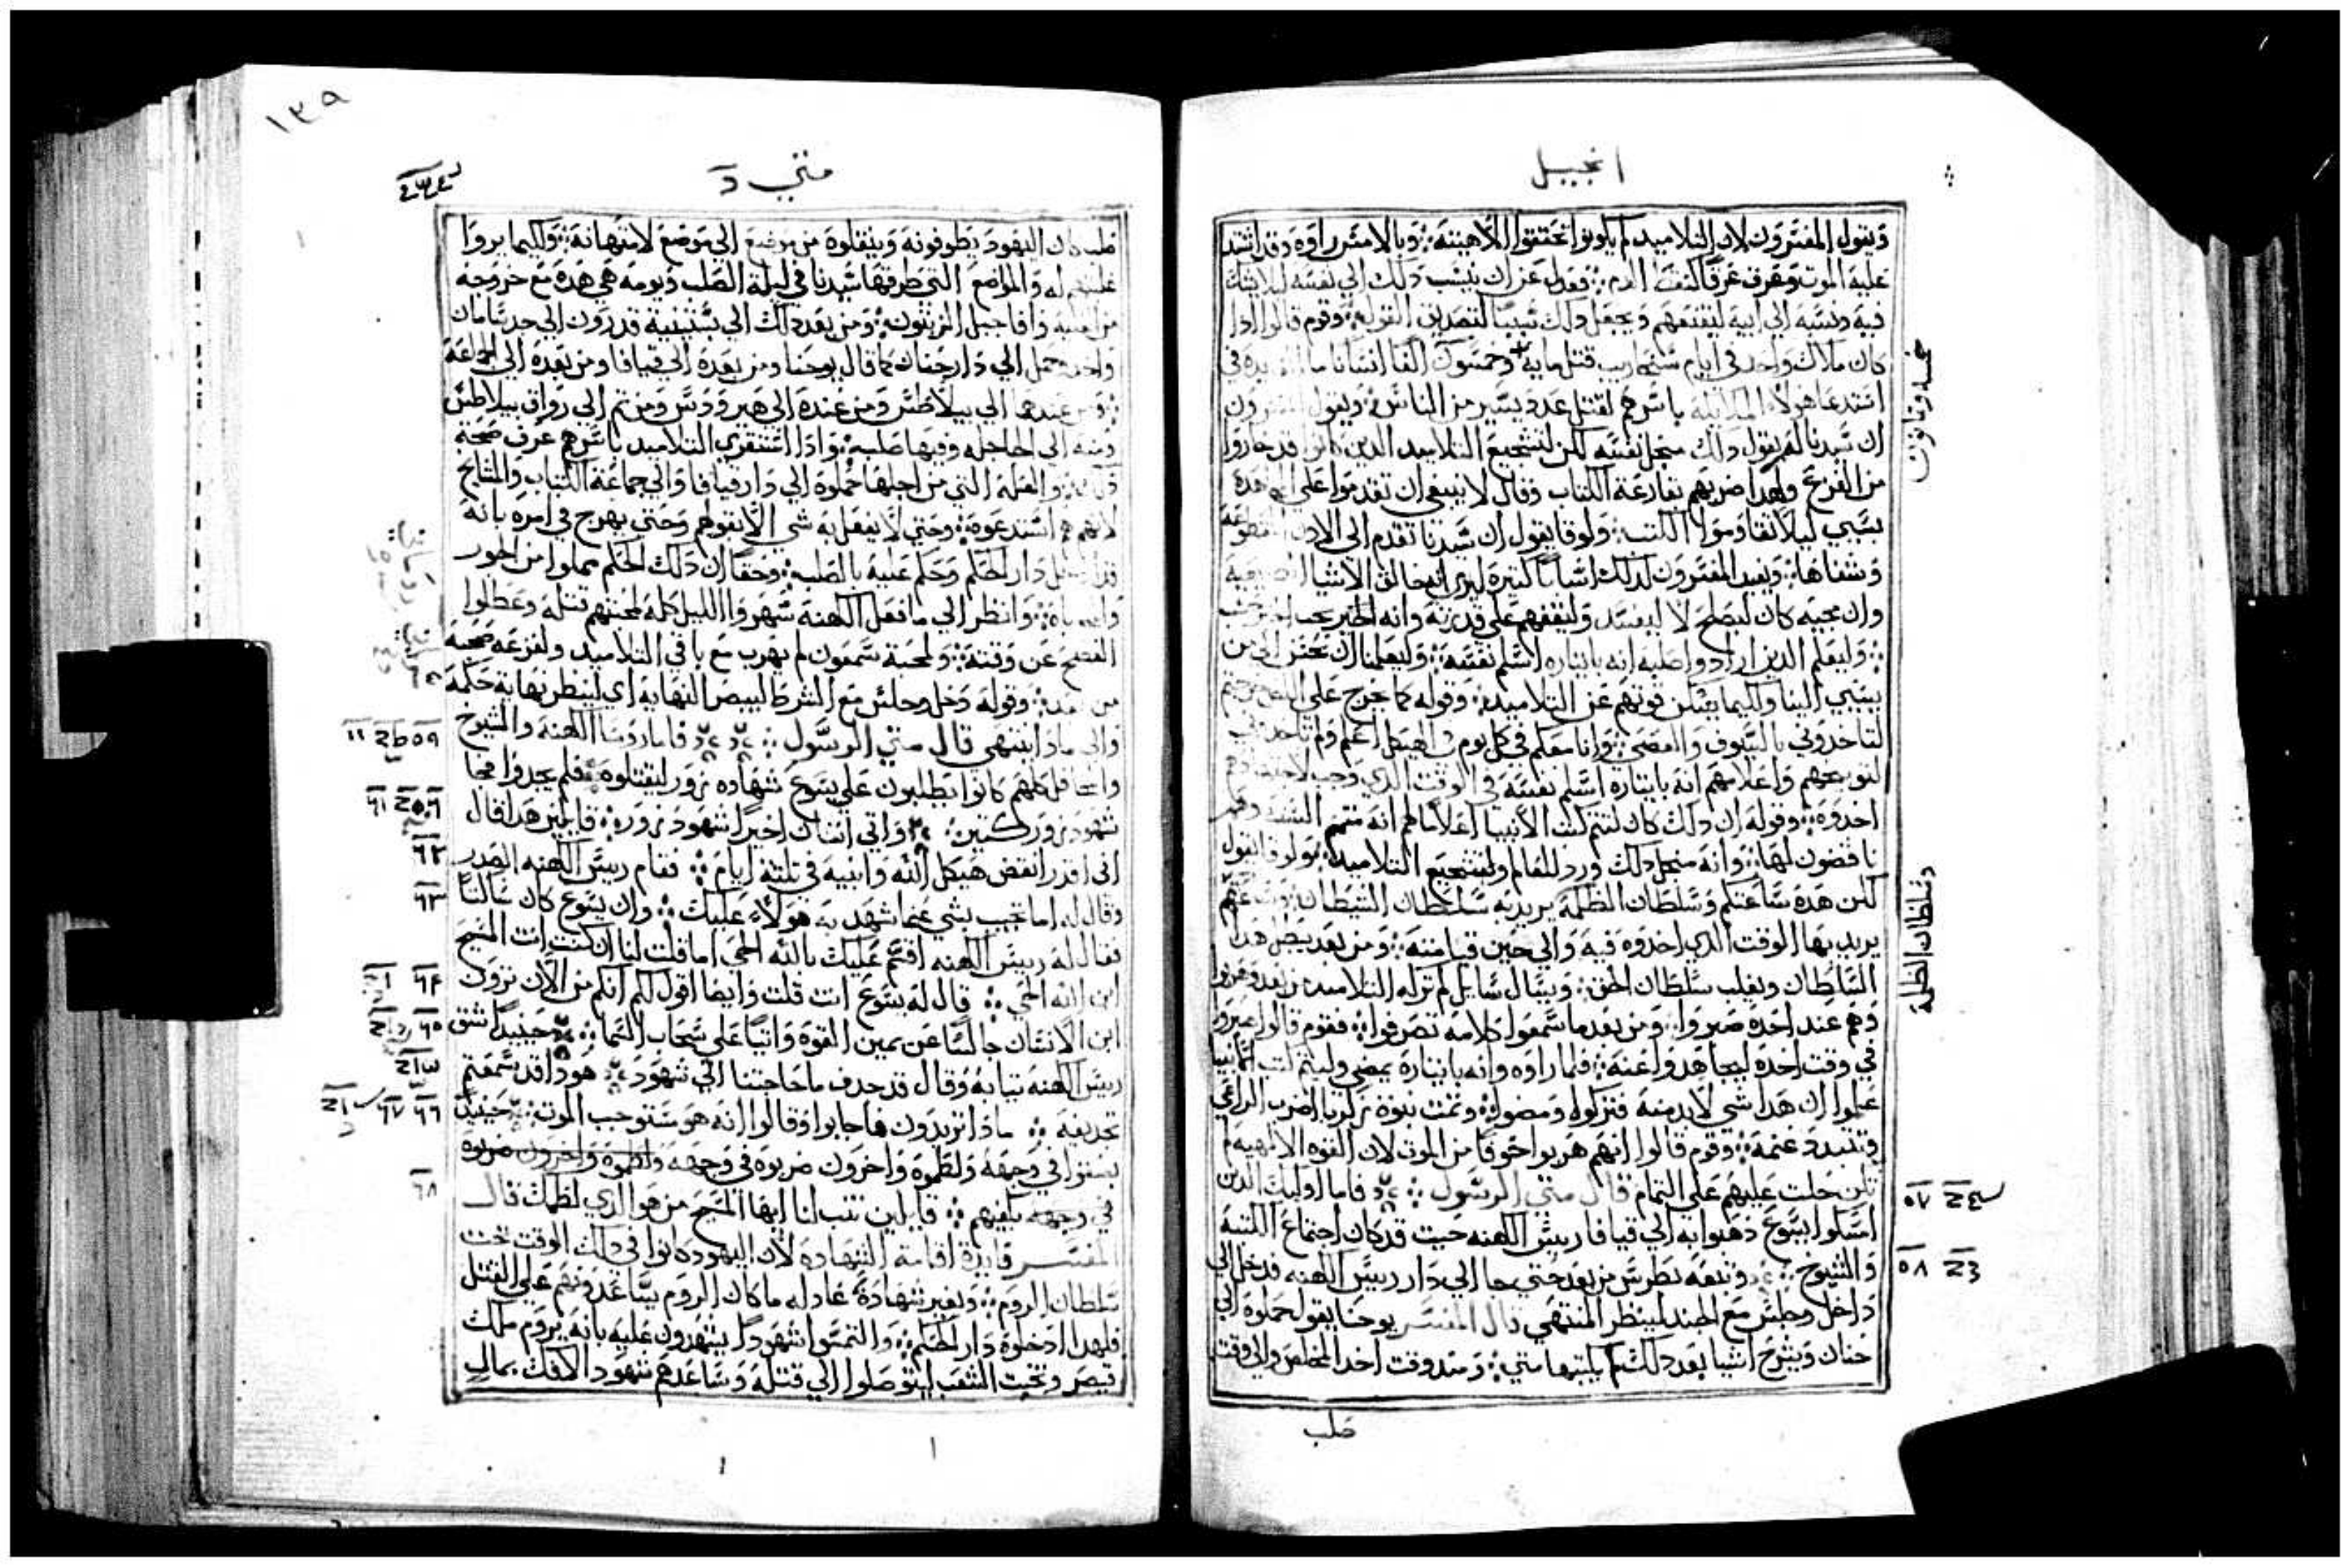 انجيل
ويقول المفسرون لان التلاميد لم يكونوا تحققوا الالاهيته وبالامس راوه وقد اشتد
عليه الموت وعرق عرقا كنقط الدم فعدل عن ان ينسب دلك الي نفسه ليلا يشك
فيه ونسبه الي ابيه ليقنعهم ويجعل دلك سببا لتصديق القول وقوم قالوا ادا
كان ملاك واحد في ايام سنحاريب قتل مايه وخمسون الفا انسانا ما في
استدعا هولاء الملايكة باسرهم لقتل عدد يسير من الناس ويقول المفسرون
ان سيدنا لم يقول دلك من اجل نفسه لكن لتشجيع التلاميد الدين كانوا قد خاروا
من الفزع ولهدا ضربهم بقارعة الكتاب وقال لا ينبغي ان تقدموا علي هده
بسببي ليلا تقاوموا الكتب ولوقا يقول ان سيدنا تقدم الي الادن المقطوعة
وشفاها ويفيد المفسرون لدلك اسبابا كثيرة ليري انه خالق الاشيا
وان مجيه كان ليصلح لا ليفسد وليقفهم علي قدرته وانه الخير يحب
وليعلم الدين ارادوا صلبه انه بايثاره اسلم نفسه وليعلمنا ان نحسن الي من
يسي الينا وكيما يسكن فوتهم عن التلاميد وقوله كما يخرج علي اللص خرجتم
لتاخدوني بالسيوف والعصي وانا معكم في كل يوم في الهيكل اعلم ولم تاخدوني
لتوبيخهم واعلامهم انه بايثاره اسلم نفسه في الوقت الدي وجب لا حين
اخدوه وقوله ان دلك كان لتتم كتب الانبيا اعلاما لهم انه متمم السنه وهم
ناقضون لها وانه من اجل دلك ورد للعالم ولتشجيع التلاميد ولوقا يقول
لكن هده ساعتكم وسلطان الظلمة يريد به سلطان الشيطان وساعتهم
يريد بها الوقت الدي اخدوه فيه والي حين قيامته ومن بعد يبطل هدا
السلطان ويغلب سلطان الحق ويسال سايل لم تركه التلاميد من بعد وهربوا
وهم عند اخده صبروا ومن بعد ما سمعوا كلامه تصرفوا فقوم قالوا صبروا
في وقت اخده ليجاهدوا عنه فلما راوه وانه بايثاره يمضي وليتم كتب الانبيا
علموا ان هدا شي لا بد منه فتركوه ومضوا وتمت نبوة زكريا اضرب الراعي
وتتبدد غنمه وقوم قالوا انهم هربوا خوفا من الموت لان القوه الالهيه لم
تكن حلت عليهم علي التمام قال متي الرسول فاما اوليك الدين
امسكوا يسوع دهبوا به الي قيافا رييس الكهنه حيت قد كان اجتماع الكتبه
والشيوخ وتبعه بطرس من بعد حتي جا الي دار رييس الكهنه فدخل الي
داخل وجلس مع الجند لينظر المنتهي قال المفسر يوحنا يقول حملوه الي
حنان ويشرح اشيا بعد دلك لم يكتبها متي ومند وقت اخد المخلص والي وقت
صلب
خمسه وثمانون
وسلطان الظلمة
٥٧
٥٨
١٣٩
متي د
صلبه كان اليهود يطوفونه وينقلوه من موضع الي موضع لامتهانه وكيما يروا
غلبتهم له والمواضع التي طرقها سيدنا في ليلة الصلب ويومه هي هده مع خروجه
من العليه وافا جبل الزيتون ومن بعد دلك الي بستنيه قدرون الي حد سامان
واخد وحمل الي دار حنان كما قال يوحنا ومن بعده الي قيافا ومن بعده الي الجماعة
ومن عندها الي بيلاطس ومن عنده الي هيرودس ومن تم الي رواق بيلاطس
ومنه الي الجاجله وفيها صلب وادا استقري التلاميد باسرهم عرف صحة
دلك والعلة التي من اجلها حملوه الي دار قيافا والي جماعة الكتاب والمشايخ
لانهم هم استدعوه وحتي لا يفعل به شي الا بقولهم وحتي يهرج في امره بانه
قد دخل دار الحكم وحكم عليه بالصلب وحقا ان دلك الحكم مملوا من الجور
وانظر الي ما فعل الكهنة سهروا الليل كله لمحبتهم قتله وعطلوا
الفصح عن وقته ولمحبة سمعون لم يهرب مع باقي التلاميد ولفزعه صحبه
من بعد وقوله دخل وجلس مع الشرط ليبصر النهاية اي لينظر نهاية حكمه
والي مادا ينتهي قال متي الرسول فاما روسا الكهنة والشيوخ
والمحافل كلهم كانوا يطلبون علي يسوع شهاده زور ليقتلوه فلم يجدوا فجا
شهود زور كتير واتي اتنان اخيرا شهود زوره قايلين هدا قال
اني اقدر انقض هيكل الله وابنيه في تلتة ايام فقام رييس الكهنه الصدر
وقال له اما تجيب بشي عما شهد به هولاء عليك وان يسوع كان ساكتا
فقال له رييس الكهنه اقسم عليك بالله الحي اما قلت لنا ان كنت انت المسيح
ابن الله الحي قال له يسوع انت قلت وايضا اقول لكم انكم من الان ترون
ابن الانسان جالسا عن يمين القوة واتيا علي سحاب السما حينيدا شق
رييس الكهنة تيابه وقال قد جدف ما حاجتنا الي شهود هودا قد سمعتم
تجديفه مادا تريدون فاجابوا وقالوا انه هو مستوجب الموت حينيد
بصقوا في وجهه ولطموه واخرون ضربوه في وجهه ولطموه واخرون ضربوه
في وجهه بكفهم قايلين تنب لنا ايها المسيح من هو الدي لطمك قال
المفسر فايدة اقامة الشهادة لان اليهود كانوا في دلك الوقت تحت
سلطان الروم وبغير شهادة عادله ما كان الروم يساعدونهم علي القتل
فلهدا ادخلوه دار الحكم والتمسوا شهودا يشهدون عليه بانه يروم ملك
قيصر وتخبت الشعب ليتوصلوا الي قتله وساعدهم شهود الافك بمال
٥٩
٦١
٦٢
٦٣
٦٤
٦٥
٦٦ ٦٧
٦٨